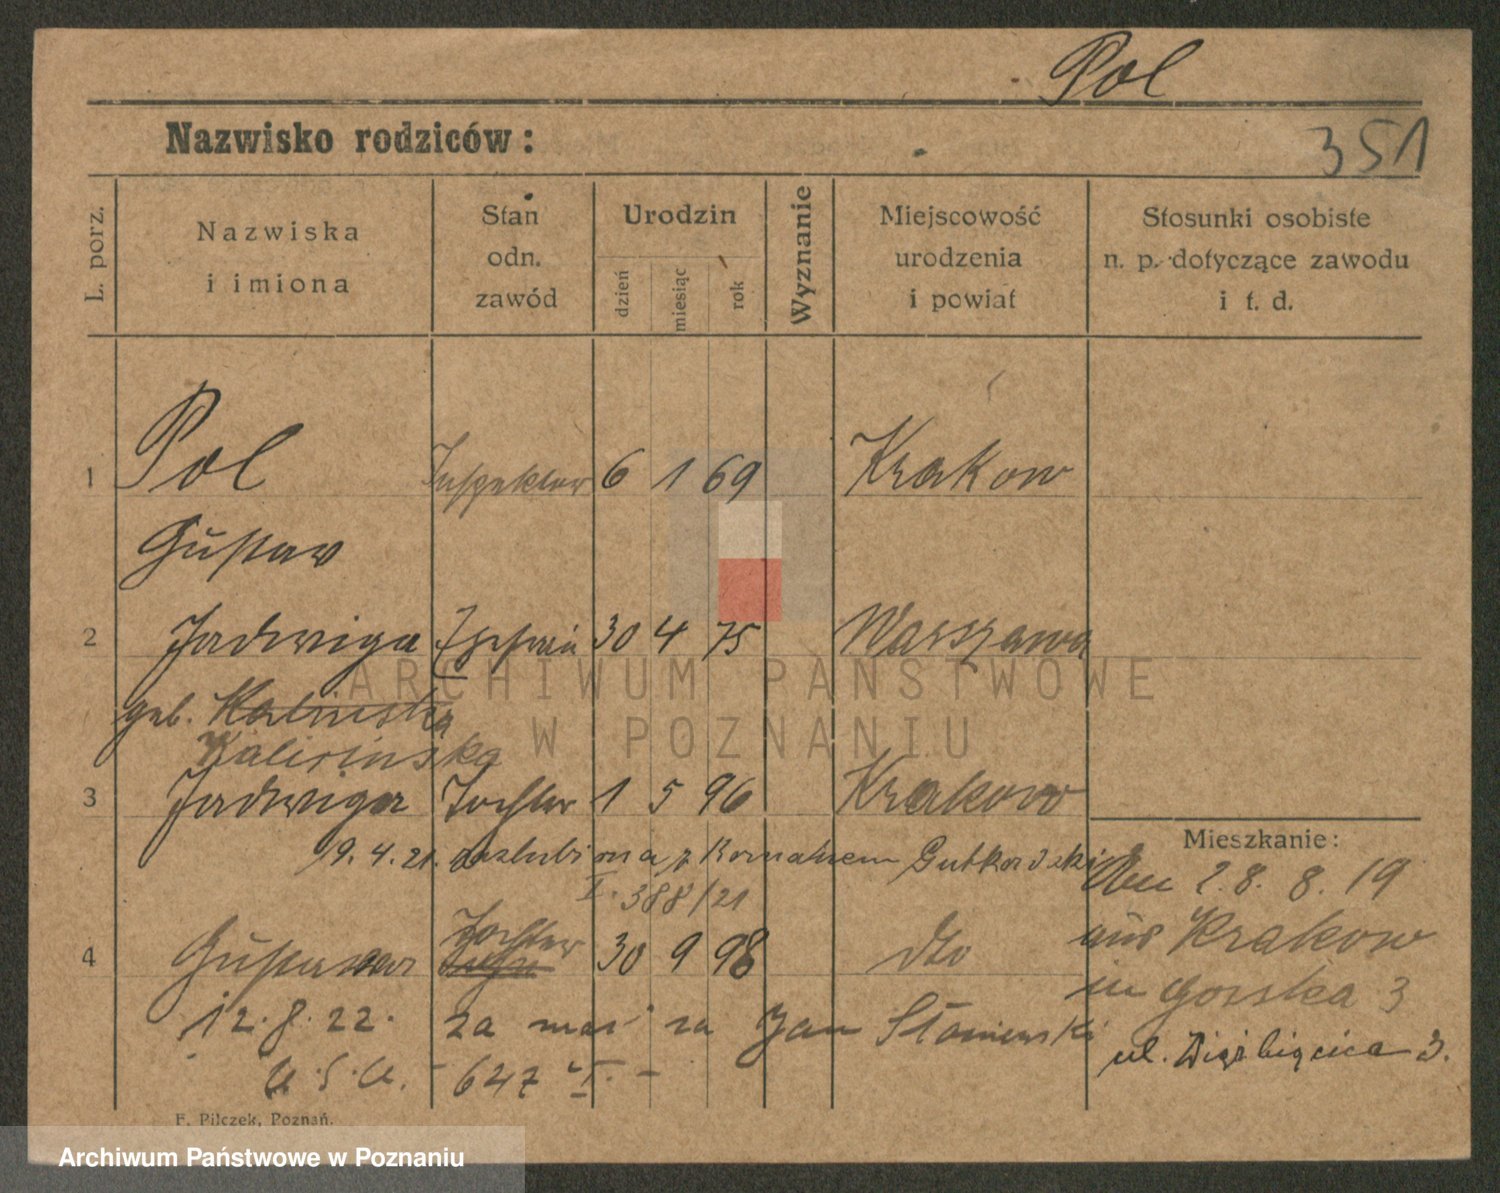 Pol
Nazwisko rodziców:
351
L. porz.
Nazwiska
i imiona
Stan
odn.
zawód
Urodzin
dzień
miesiąc
rok
Wyznanie
Miejscowość
urodzenia
i powiat
Stosunki osobiste
n. p. dotyczące zawodu
i t. d.
1 Pol Inspektor 6 1 69 Krakow
Gustav
2 Jadwiga 30 4 75 Warszawa
geb. Kalinska
3 Jadwiga Tochter 1 5 96 Krakow
9.4.21. zaslubiona z Gutkowski
I. 388/21
Tochter
4 Gustawa 30 9 98 dto
12. 8. 22. za mąż za Jan
U. S. C. - 647 I. -
Mieszkanie:
28. 8. 19
aus Krakow
in Gorska 3
ul. 3.
F. Pilczek, Poznań.
ARCHIWUM PAŃSTWOWE
W POZNANIU
Archiwum Państwowe w Poznaniu